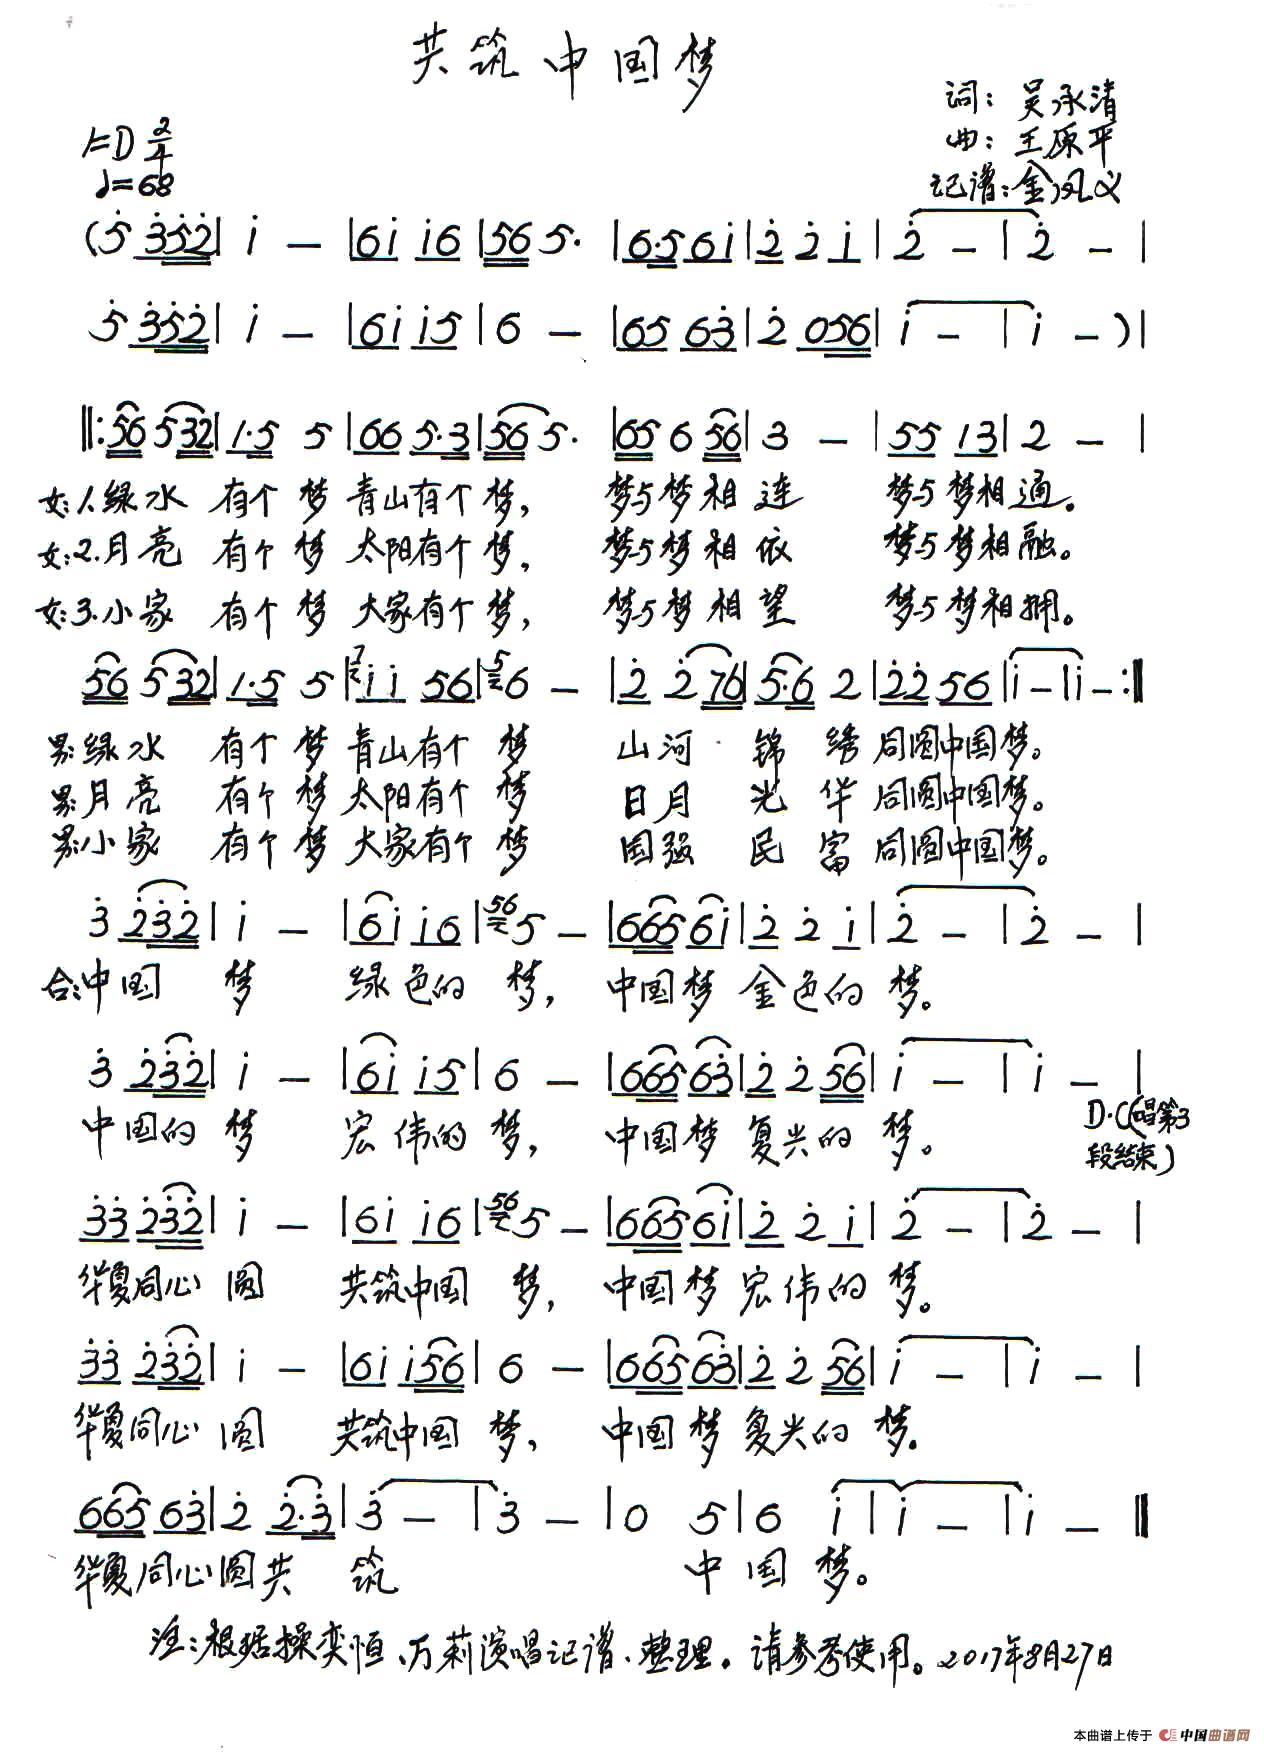 共筑中国梦
词：吴承清
曲：王原平
记谱：金凤义
1=D 2/4
♩=68
(5̇ 3̇5̇2̇| i – |6i i6 |56 5· |6·5 6i|2̇ 2̇ i |2̇ – |2̇ – |
5̇ 3̇5̇2̇| i – |6i i5 |6 – |65 63̇|2̇ 056| i – | i – )|
‖:56 532|1·5 5 |66 5·3|56 5· |65 6 56|3 – |55 13|2 – |
女:1.绿水 有个 梦 青山有个 梦， 梦与梦相 连 梦与梦相通。
女:2.月亮 有个 梦 太阳有个 梦， 梦与梦相 依 梦与梦相融。
女:3.小家 有个 梦 大家有个 梦， 梦与梦相 望 梦与梦相拥。
56 532|1·5 5 |7 i i 56|5 6 – |2̇ 2̇76|5·6 2 |2̇2̇ 56|i – |i – :‖
男:绿水 有个 梦 青山有个 梦 山河 锦 绣 同圆中国梦。
男:月亮 有个 梦 太阳有个 梦 日月 光 华 同圆中国梦。
男:小家 有个 梦 大家有个 梦 国强 民 富 同圆中国梦。
3̇ 2̇3̇2̇| i – |6i i6 |56 5 – |665 6i|2̇ 2̇ i |2̇ – |2̇ – |
合:中国 梦 绿色的 梦， 中国梦 金色的 梦。
3̇ 2̇3̇2̇| i – |6i i5 |6 – |665 63̇|2̇ 2̇ 56| i – | i – |
D.C(唱第3
中国的 梦 宏伟的 梦， 中国梦 复兴的 梦。
段结束)
3̇3̇ 2̇3̇2̇| i – |6i i6 |56 5 – |665 6i|2̇ 2̇ i |2̇ – |2̇ – |
华夏同心 圆 共筑中国 梦， 中国梦 宏伟的 梦。
3̇3̇ 2̇3̇2̇| i – |6i i56|6 – |665 63̇|2̇ 2̇ 56| i – | i – |
华夏同心 圆 共筑中国 梦， 中国梦 复兴的 梦。
665 63̇|2̇ 2̇·3̇|3̇ – |3̇ – |0 5|6 i | i – | i – ‖
华夏同心圆共 筑 中国 梦。
注：根据操奕恒、万莉演唱记谱、整理。请参考使用。2017年8月27日
本曲谱上传于 中国曲谱网